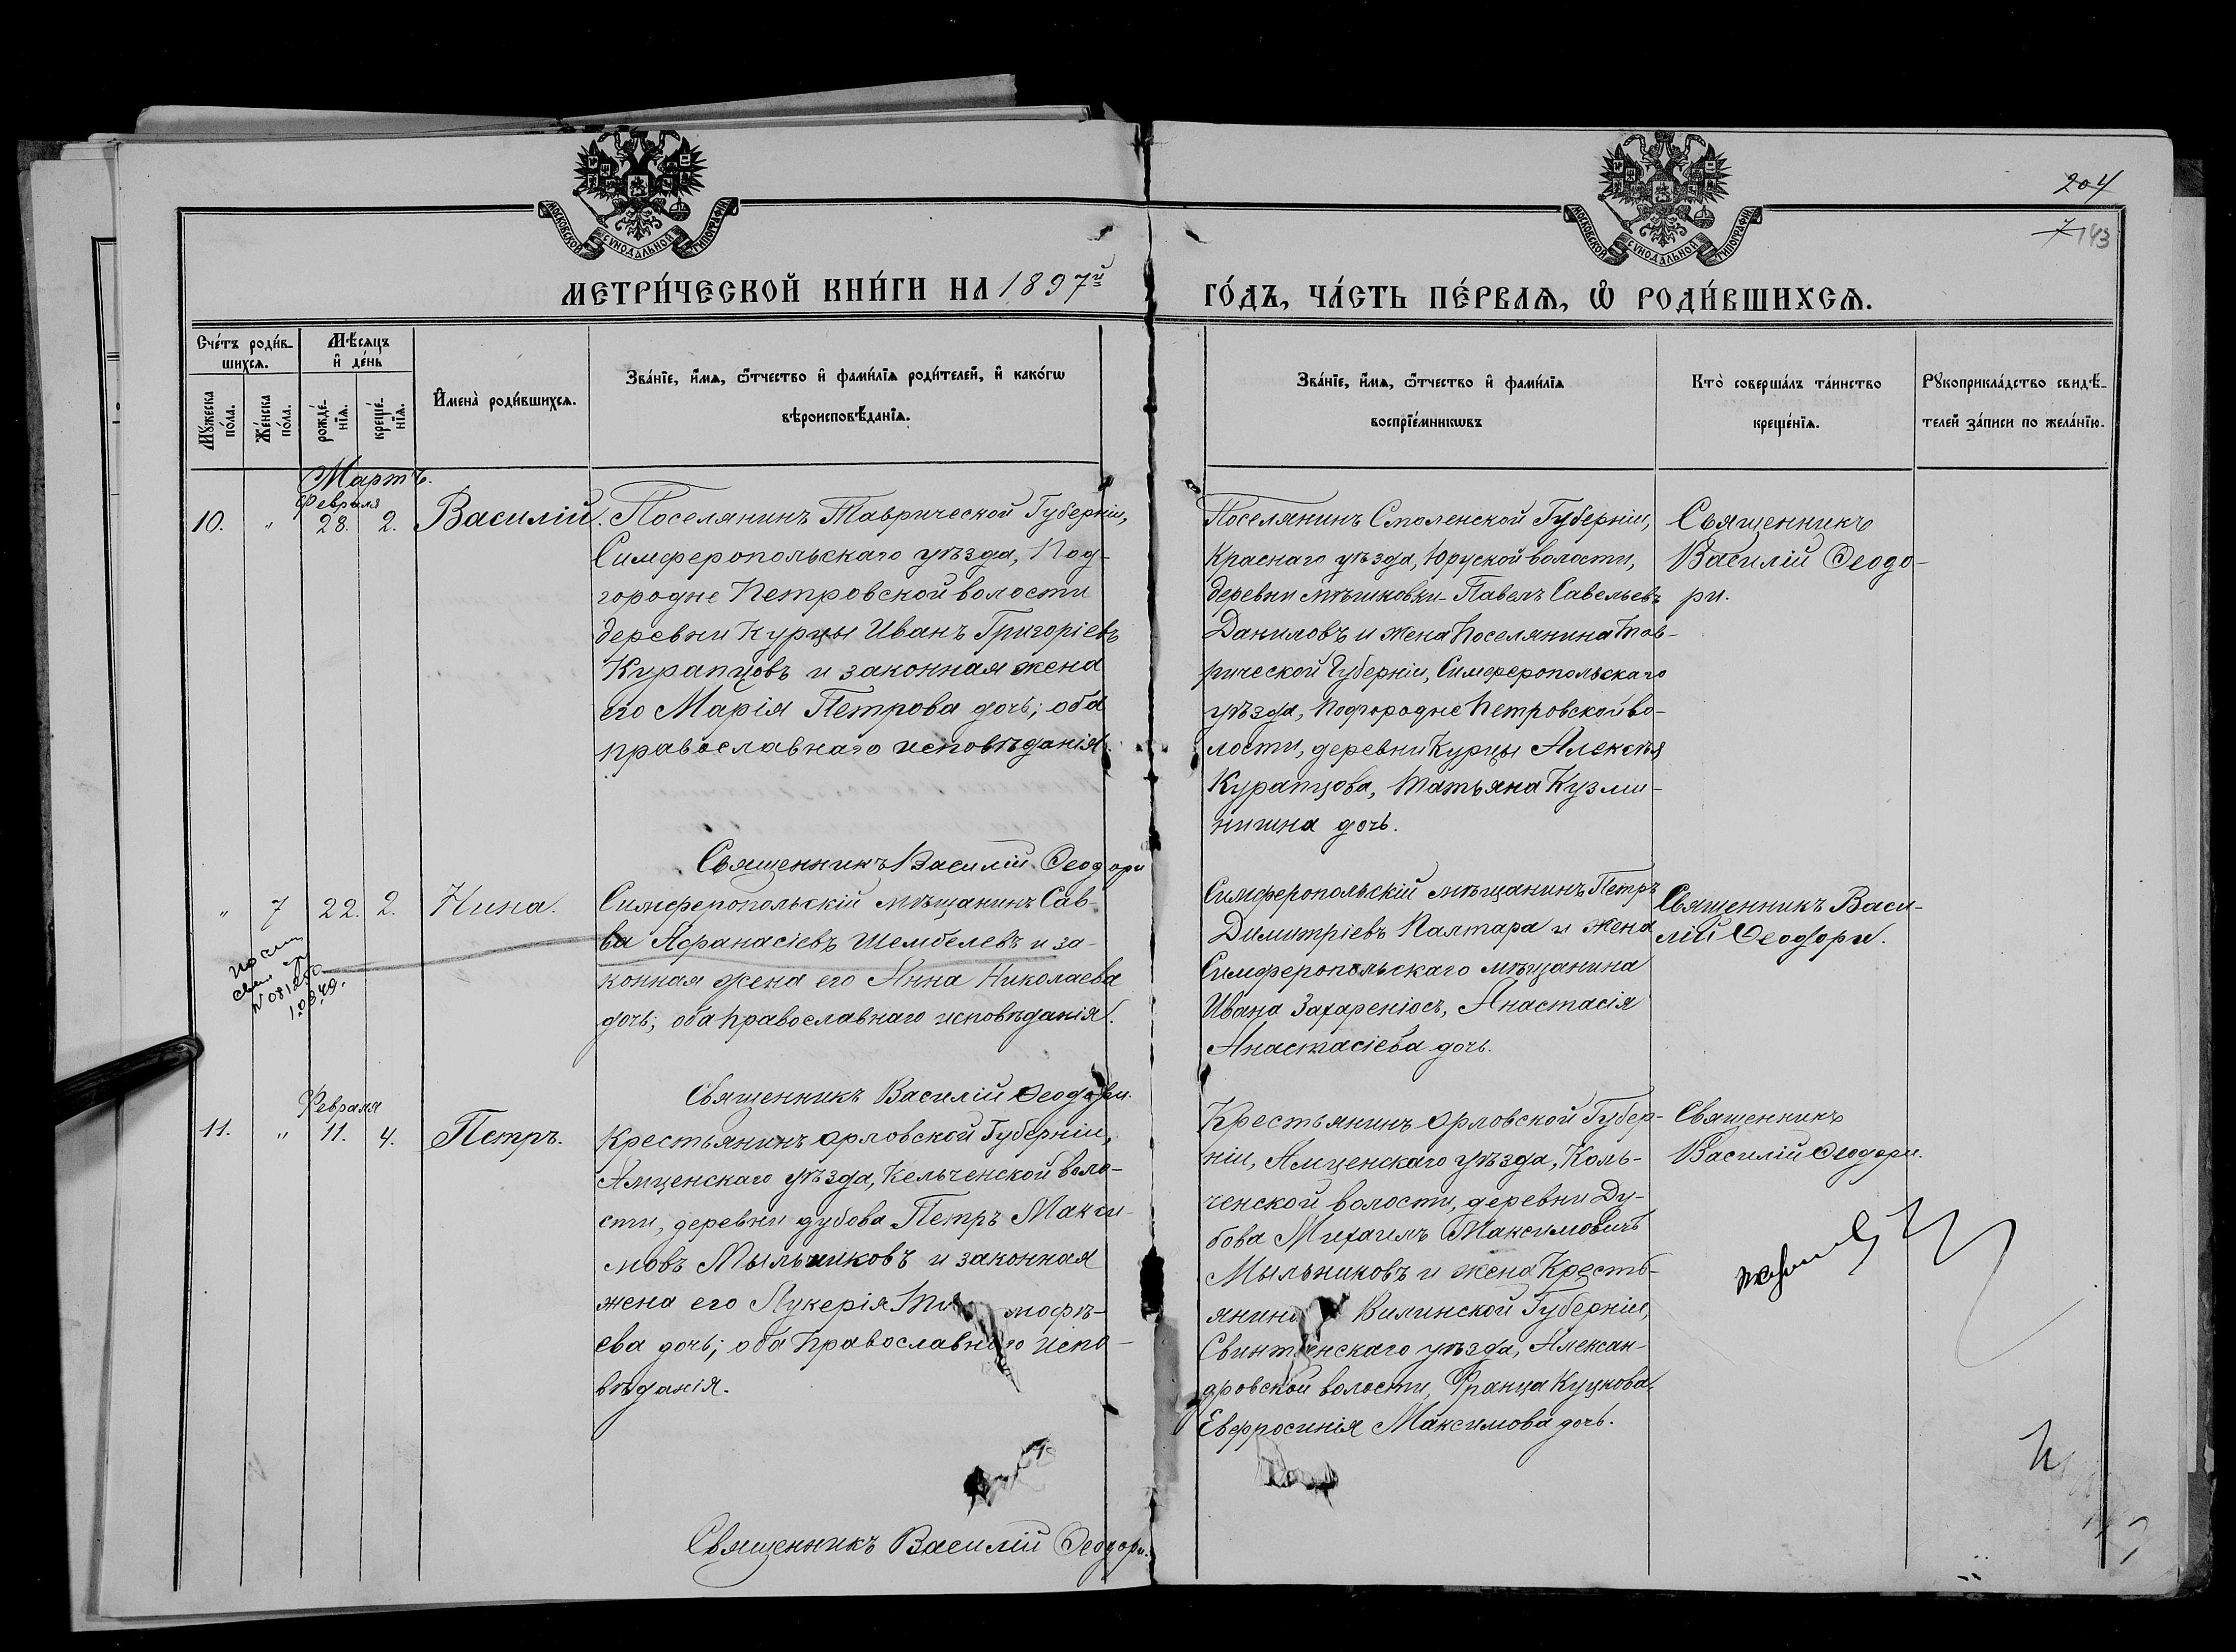 МОСКОВСКОЙ СѴНОДАЛЬНОЙ ТИПОГРАФІИ
МОСКОВСКОЙ СѴНОДАЛЬНОЙ ТИПОГРАФІИ
204
7 143
МЕТРИ́ЧЕСКОЙ КНИ́ГИ НА 1897й
ГО́ДЪ, ЧА́СТЬ ПЕ́РВАѦ, Ѿ РОДИ́ВШИХСѦ.
Сче́тъ роди́в-
шихсѧ.
Мѣ́сѧцъ
и҆ де́нь
Мꙋ́жеска
по́ла.
Же́нска
по́ла.
рожде́-
нїѧ.
креще́-
нїѧ.
И҆мена̀ роди́вшихсѧ.
Зва́нїе, и҆́мѧ, ѻ҆́тчество и҆ фами́лїѧ роди́телей, и҆ како́гѡ
вѣроисповѣ́данїѧ.
Зва́нїе, и҆́мѧ, ѻ҆́тчество и҆ фами́лїѧ
воспрїе́мникѡвъ
Кто̀ соверша́лъ та́инство
креще́нїѧ.
Рꙋкоприкла́дство свидѣ́-
телей за́писи по жела́нїю.
Мартъ.
Февраля
10. " 28. 2. Василій.
Поселянинъ Таврической Губерніи,
Симферопольскаго уѣзда, Под-
городне Петровской волости
деревни Курцы Иванъ Григоріевъ
Курапцовъ и законная жена
его Марія Петрова дочь; оба
православнаго исповѣданія.
Поселянинъ Смоленской Губерніи,
Краснаго уѣзда, Юруской волости,
деревни Мѣшковки Павелъ Савельевъ
Даниловъ и жена поселянина Тав-
рической Губерніи, Симферопольскаго
уѣзда, Подгородне Петровской во-
лости, деревни Курцы Алексѣя
Курапцова, Татьяна Кузми-
нишна дочь.
Священникъ
Василій Ѳеодо-
ри.
Священникъ Василій Ѳеодори
" 7 22. 2. Нина.
Симферопольскій мѣщанинъ Сав-
ва Афанасіевъ Шембелевъ и за-
конная жена его Анна Николаева
дочь; оба православнаго исповѣданія.
Симферопольскій мѣщанинъ Петръ
Димитріевъ Палтара и жена
Симферопольскаго мѣщанина
Ивана Захареніосъ, Анастасія
Анастасіева дочь.
Священникъ Васи-
лій Ѳеодори.
Священникъ Василій Ѳеодори.
Февраля
11. " 11. 4. Петръ.
Крестьянинъ Орловской Губерніи,
Амценскаго уѣзда, Кельченской воло-
сти, деревни Дубова Петръ Макси-
мовъ Мыльниковъ и законная
жена его Лукерія Ти мофѣ-
ева дочь; оба православнаго испо-
вѣданія.
Крестьянинъ Орловской Губер-
ніи, Амценскаго уѣзда, Коль-
ченской волости, деревни Ду-
бова Михаилъ Максимовичъ
Мыльниковъ и жена Кресть-
янина Вилинской Губерніи,
Свинтенскаго уѣзда, Алексан-
дровской волости, Франца Куцкова
Евфросинія Максимова дочь.
Священникъ
Василій Ѳеодори.
Священникъ Василій Ѳеодори.